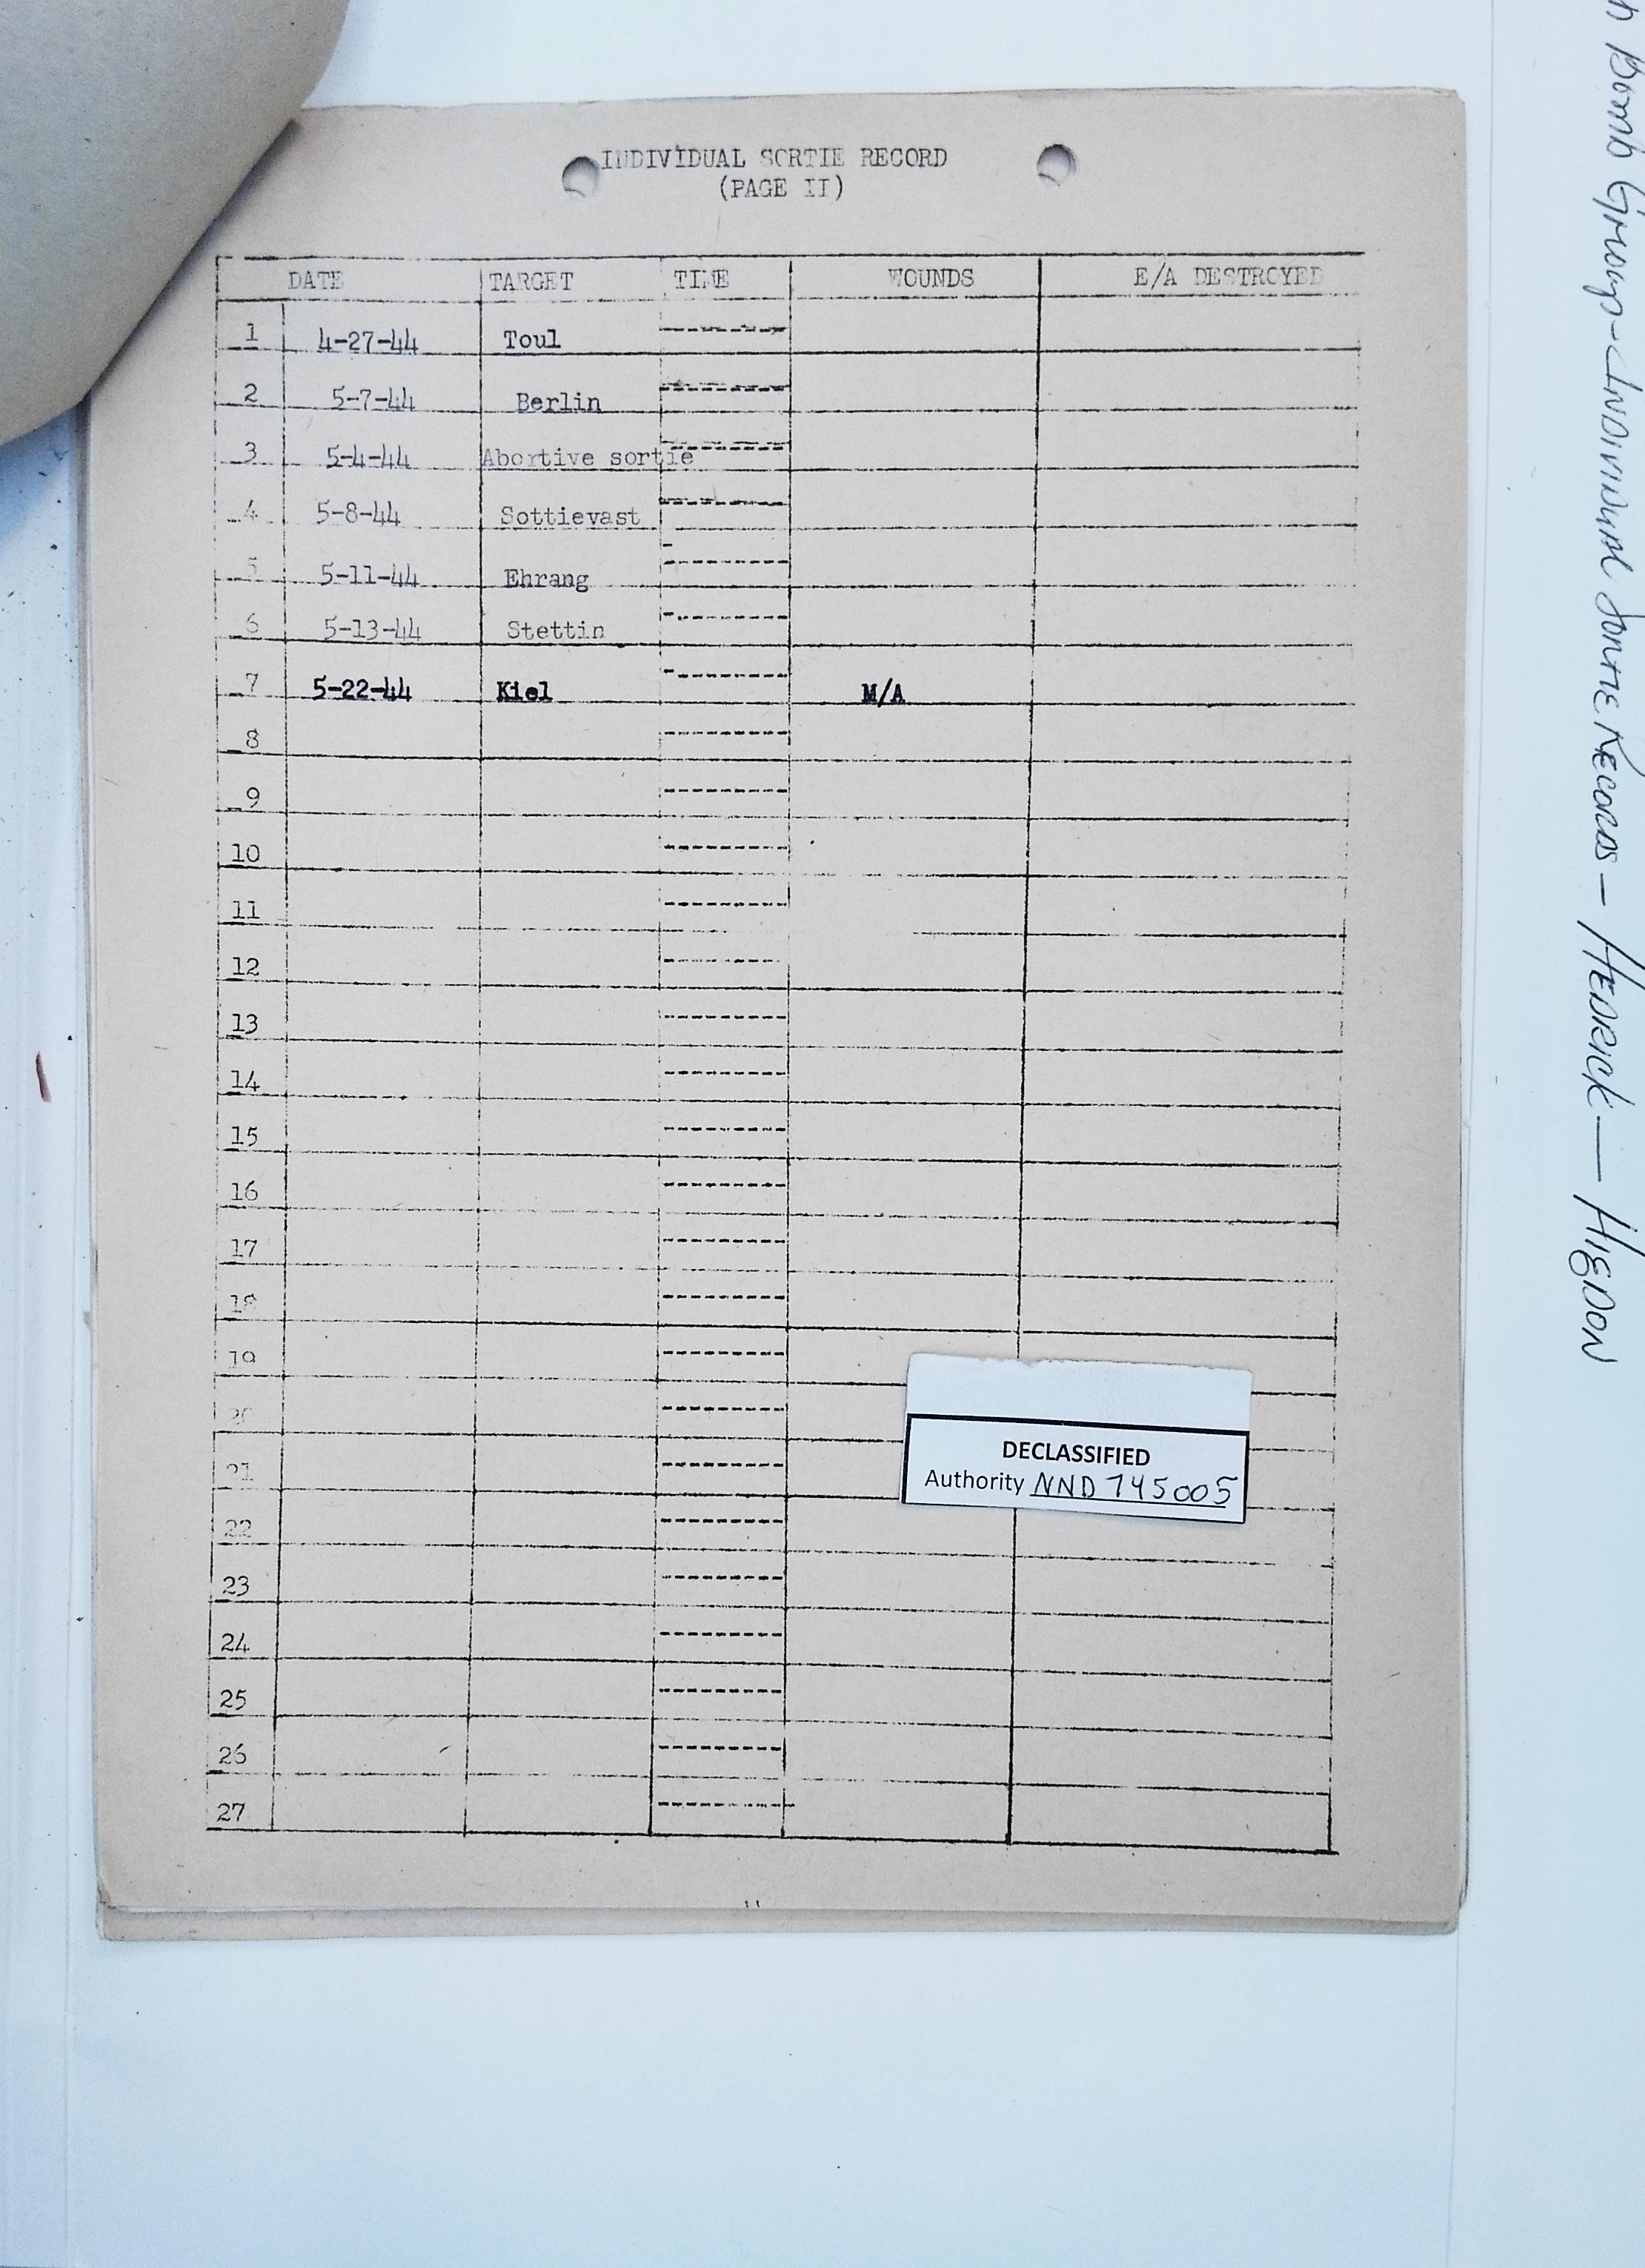 INDIVIDUAL SORTIE RECORD
(PAGE II)
DATE TARGET TIME WOUNDS E/A DESTROYED
1 4-27-44 Toul
2 5-7-44 Berlin
3 5-4-44 Abortive sortie
4 5-8-44 Sottievast
5 5-11-44 Ehrang
6 5-13-44 Stettin
7 5-22-44 Kiel M/A
8
9
10
11
12
13
14
15
16
17
18
19
20
21
22
23
24
25
26
27
DECLASSIFIED
Authority NND 745005
Bomb Group - Individual Sortie Records - HEDRICK - HIGDON